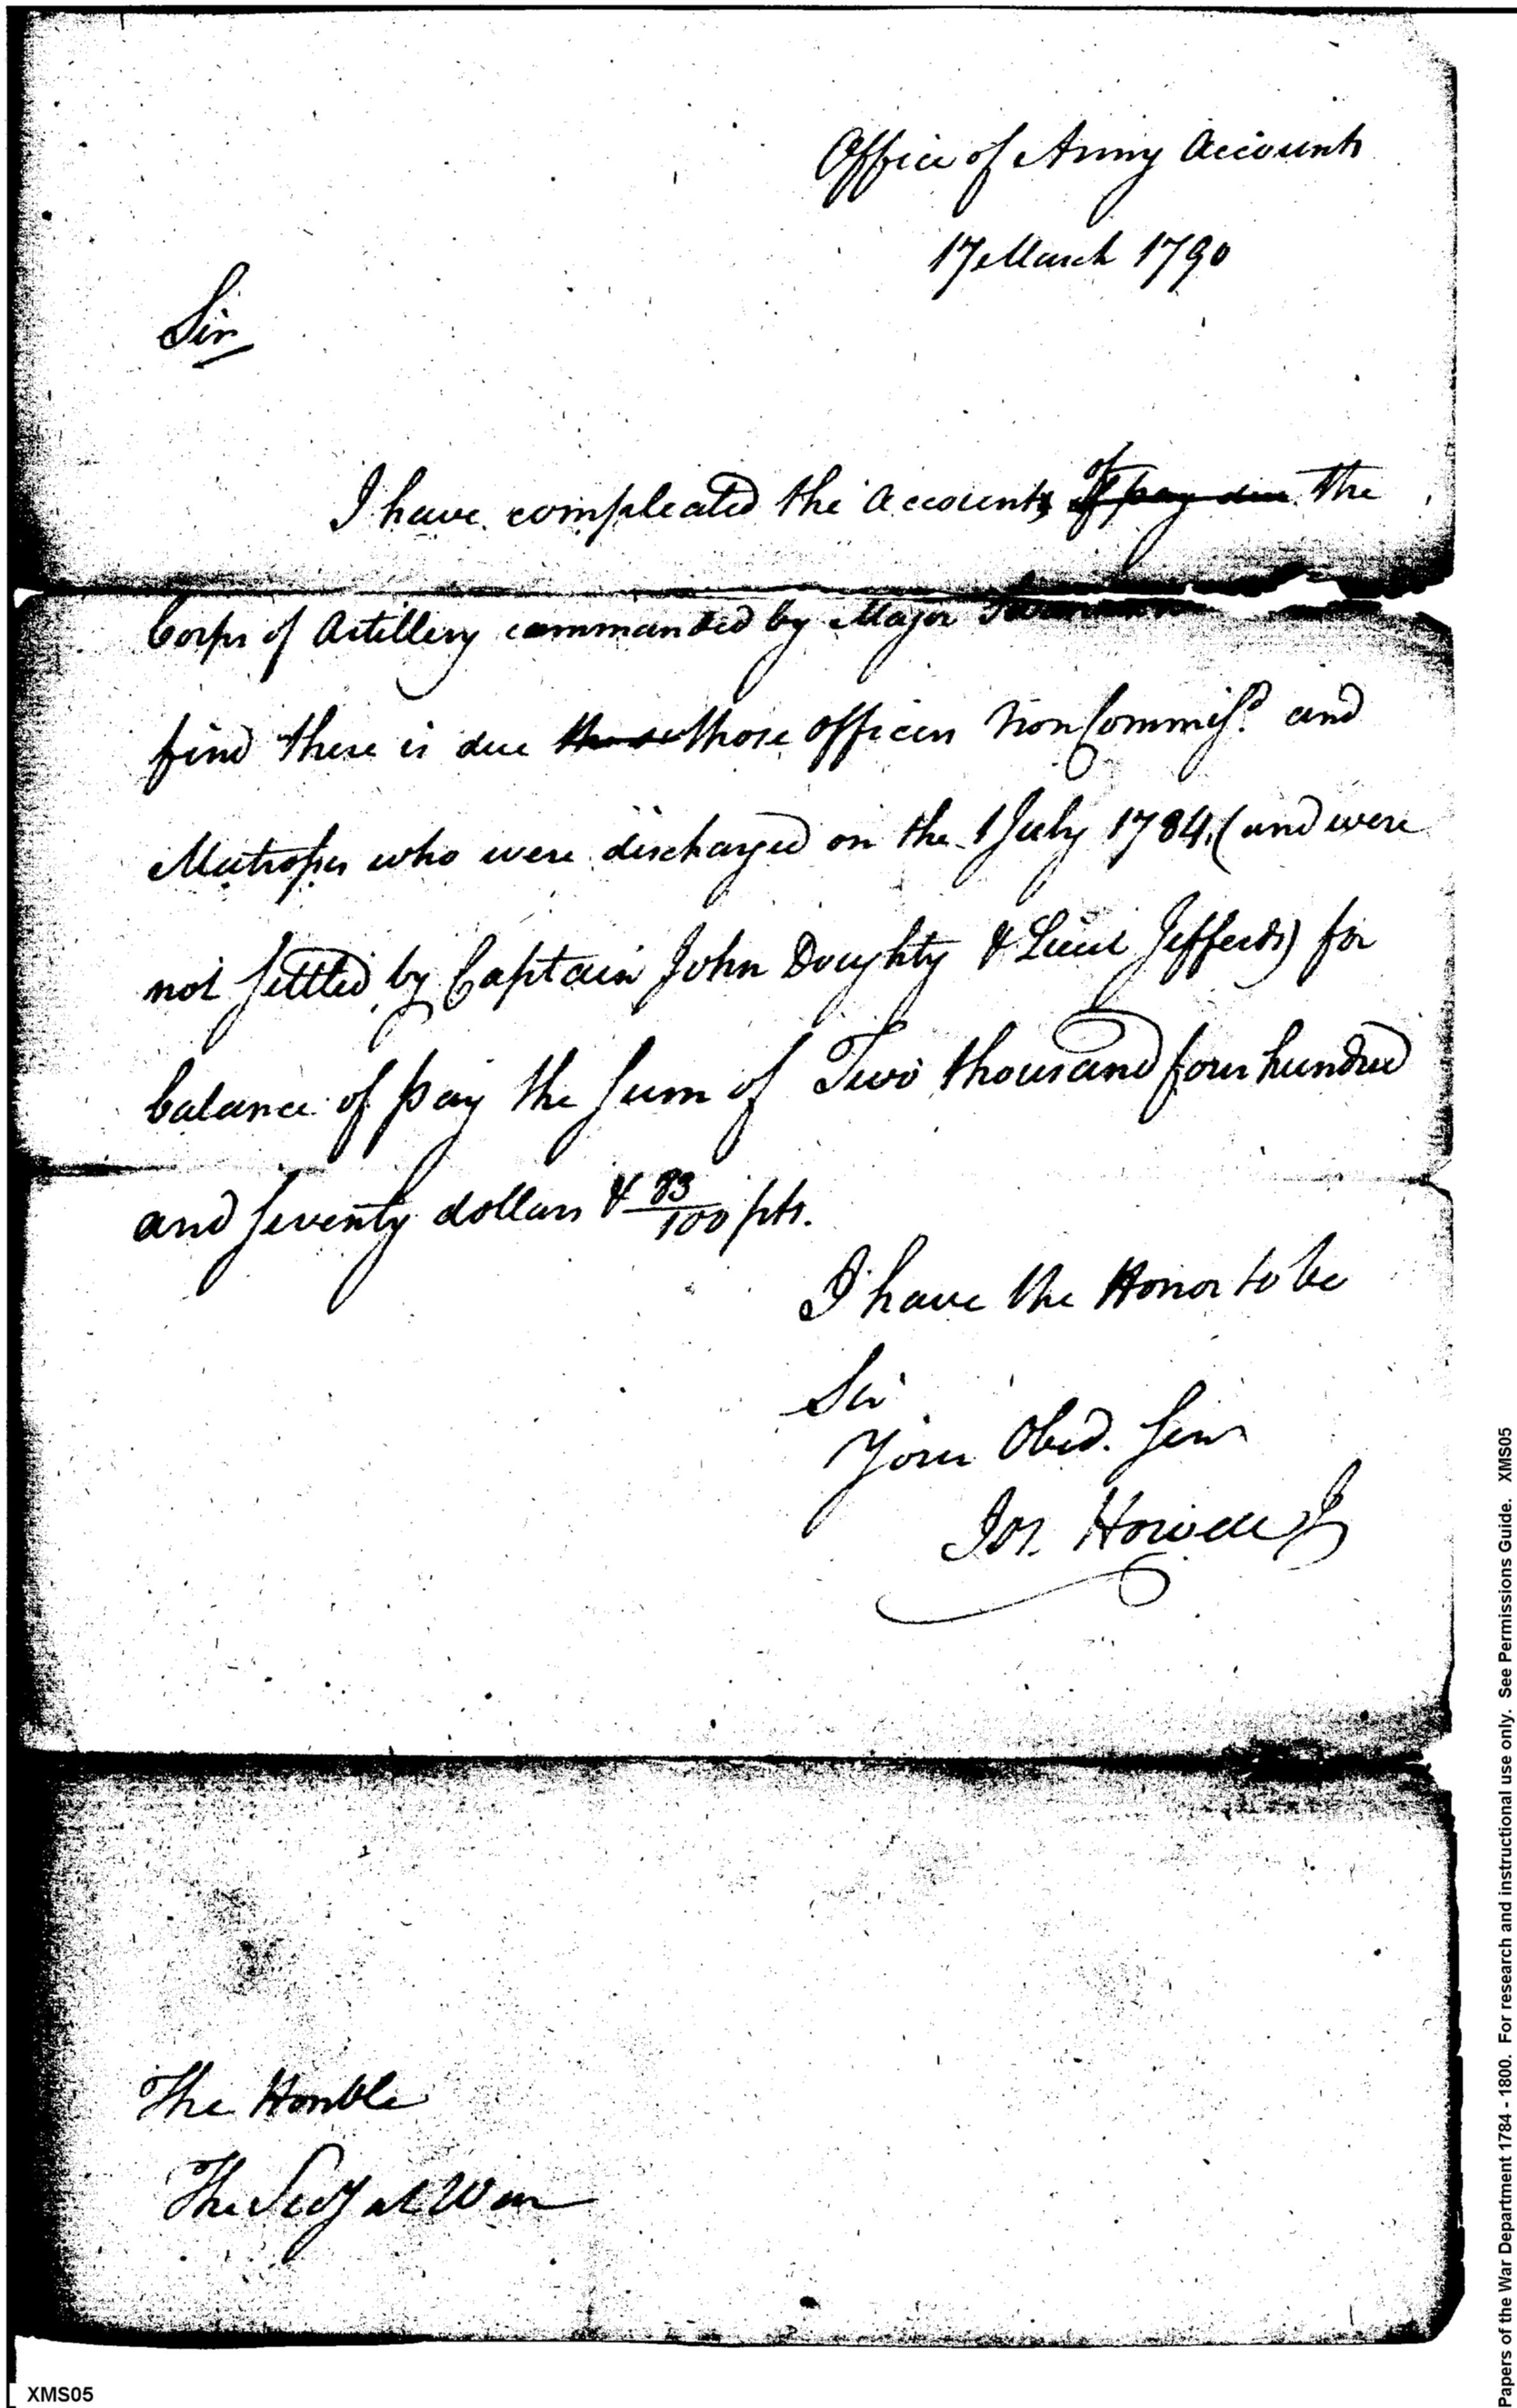 Office of Army Accounts
17 March 1790
Sir
I have compleated the Accounts of pay due of the
Corps of Artillery commanded by Major
find there is due those those officers Non Commisd. and
Matrosses who were discharged on the 1 July 1784, (and were
not settled by Captain John Doughty & Lieut Jeffers) for
balance of pay the sum of Two thousand four hundred
and seventy dollars & 83/100 pts.
I have the Honor to be
Sir
Your Obed. Serv
Jos. Howell Jr
The Honble
The Secy at War
XMS05
Papers of the War Department 1784 - 1800. For research and instructional use only. See Permissions Guide. XMS05